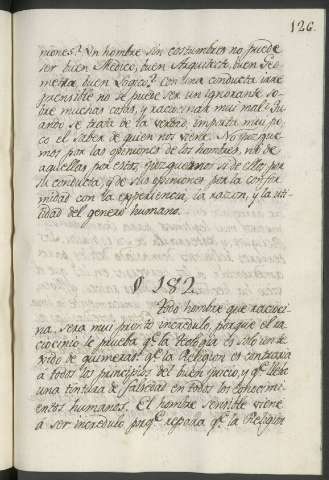 126.
niones? Un hombre sin costumbres no puede
ser buen Medico, buen Arquitecto, buen Geo-
metra, buen Logico? con una conducta irre
prensible no se puede ser un ignorante so-
bre muchas cosas, y raciocinar mui mal? Qu
ando se trata de la verdad, importa mui po-
co el saber de quien nos viene. No juzgue-
mos por las opiniones de los hombres, ni de
aquellas por estos, juzguemos si de ellos por
su conducta, y de sus opiniones por la confor
midad con la experiencia, la razon, y la uti-
lidad del genero humano.
§ 182
Todo hombre que racioci-
na, sera mui pronto incredulo, porque el ra
ciocinio le prueba qe. la Teologia es solo un te
xido de quimeras: qe. la Religion es contraria
á todos los principios del buen juicio, y qe. lleba
una tintura de falsedad en todos los conocimi-
entos humanos. El hombre sensible viene
á ser incredulo porqe. repara qe. la Religion